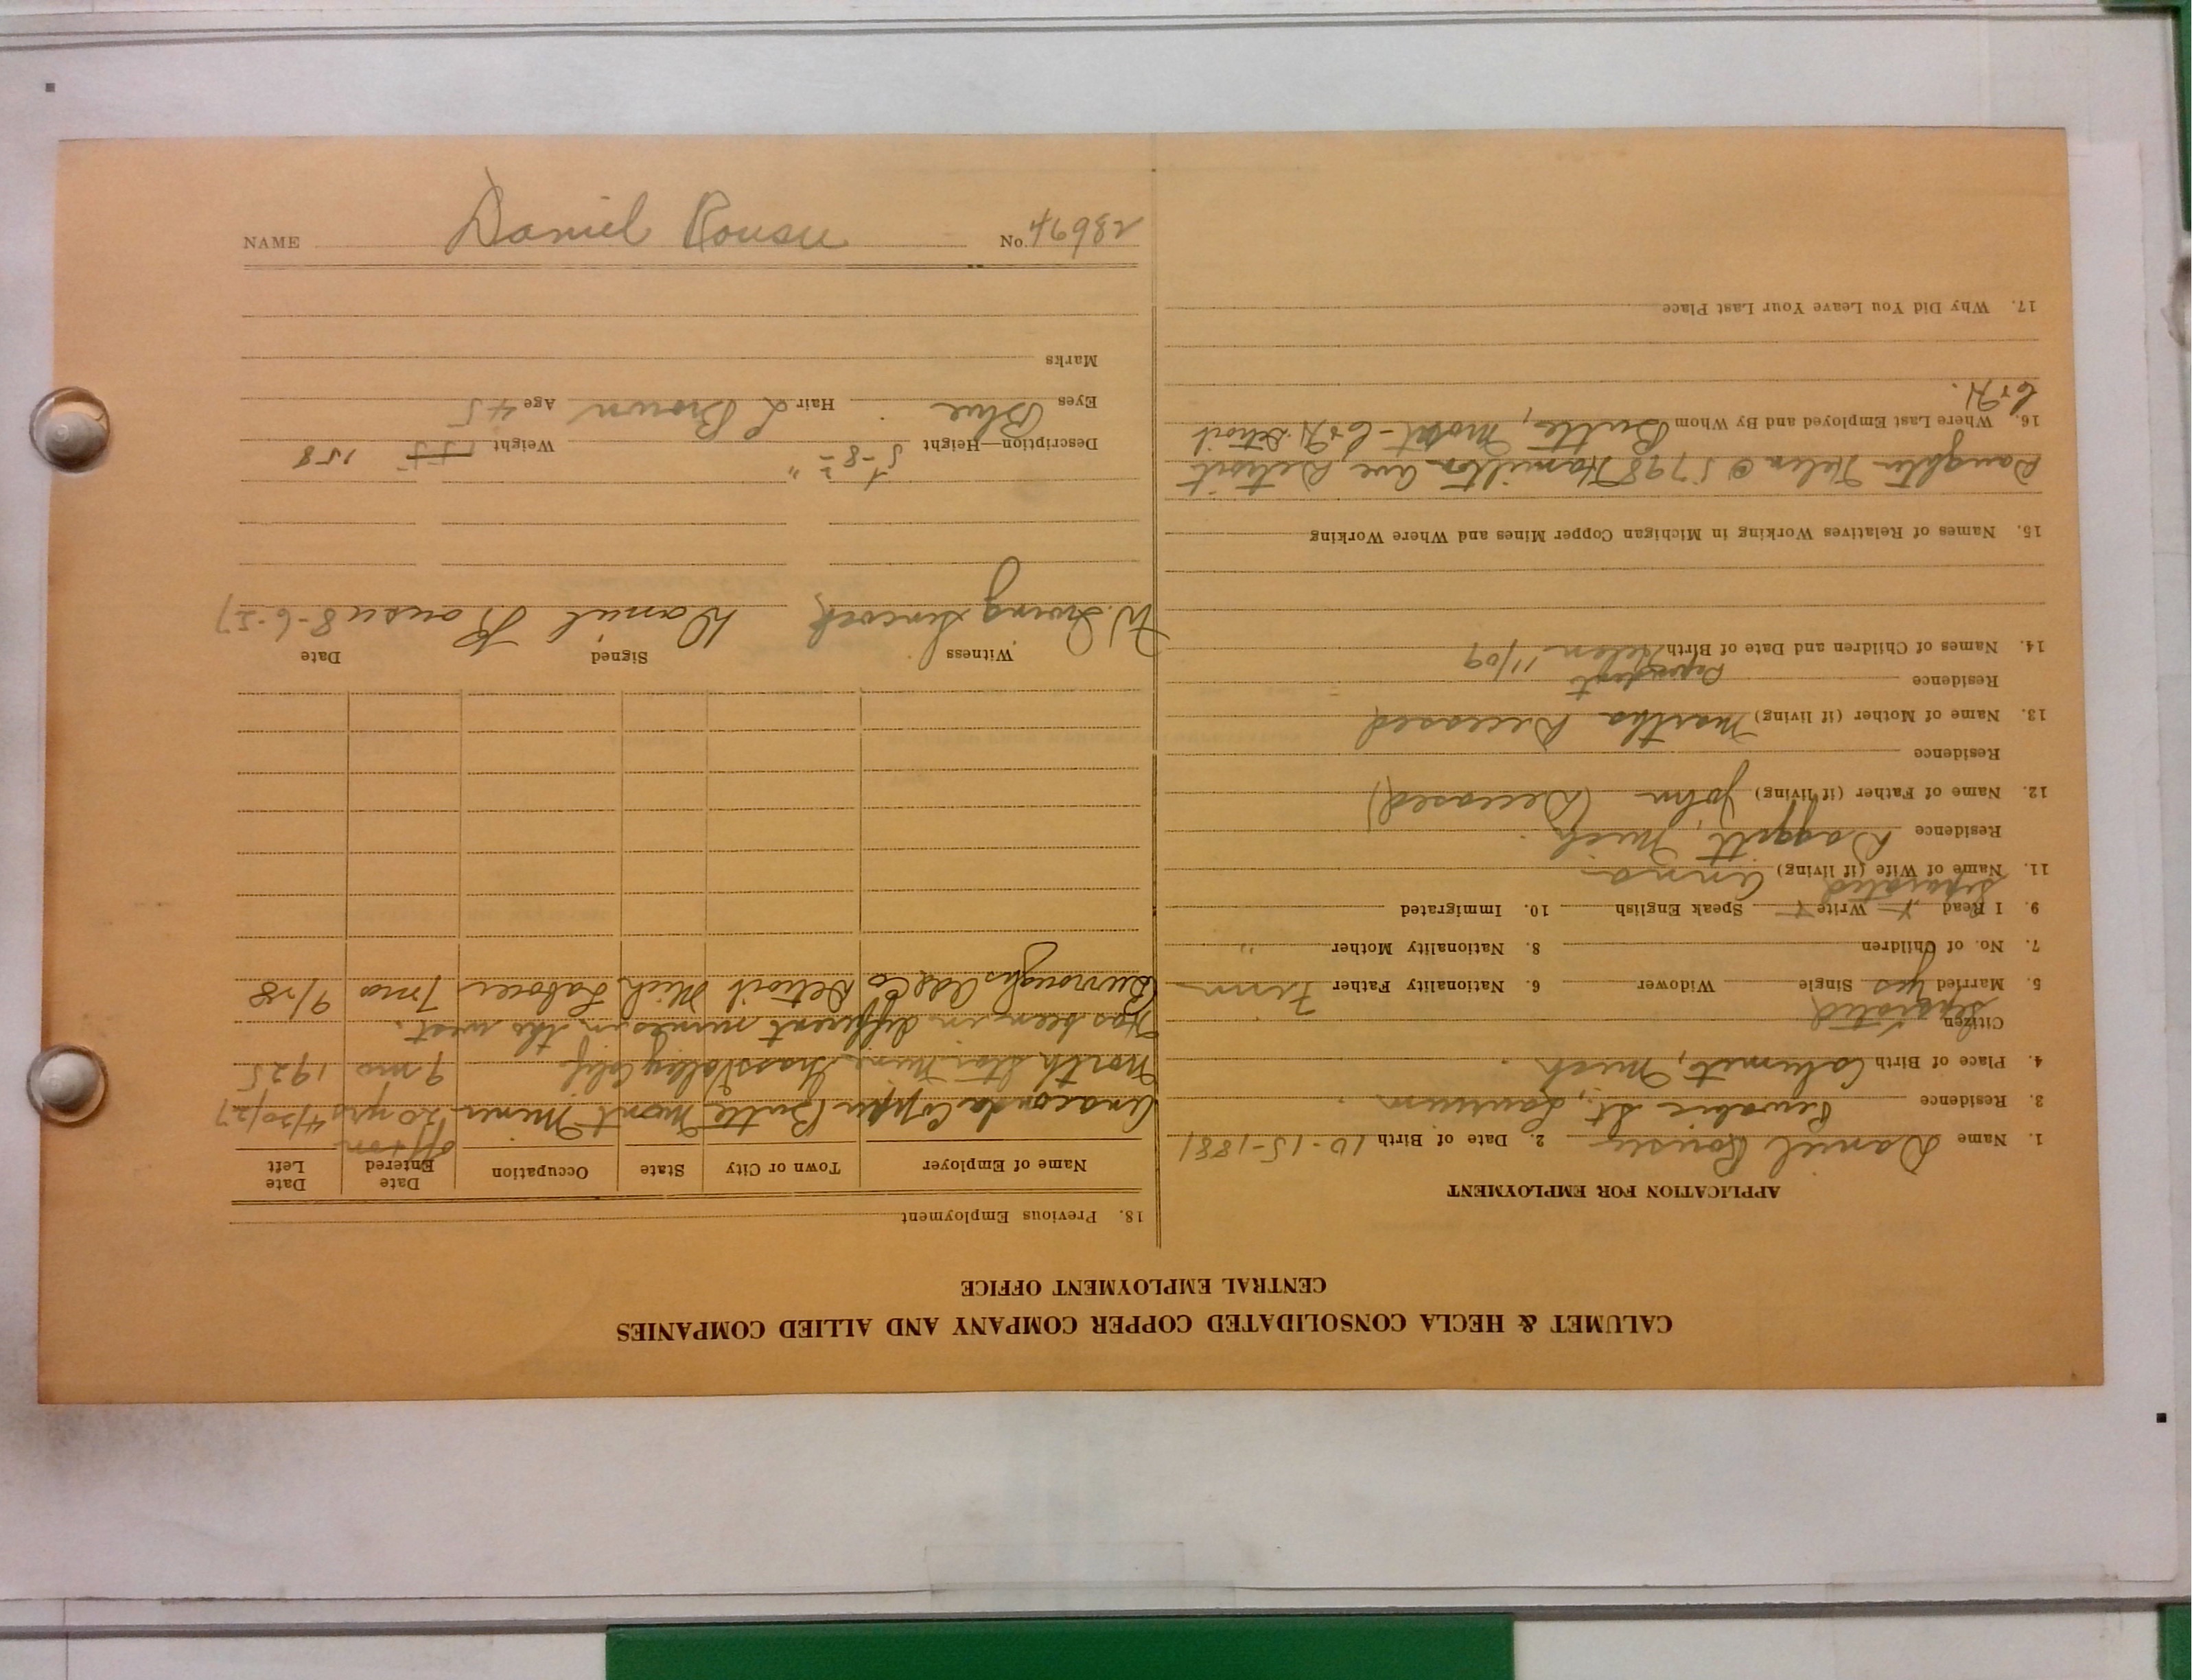 CALUMET & HECLA CONSOLIDATED COPPER COMPANY AND ALLIED COMPANIES
CENTRAL EMPLOYMENT OFFICE
APPLICATION FOR EMPLOYMENT
1. Name Daniel Rousu 2. Date of Birth 10-15-1881
3. Residence Kewabic St., Laurium
4. Place of Birth Calumet, Mich.
Citizen
separated
5. Married yes Single Widower 6. Nationality Father Finn
7. No. of Children 8. Nationality Mother "
9. I Read x Write x Speak English 10. Immigrated
separated
11. Name of Wife (if living) Anna
Residence Daggett, Mich.
12. Name of Father (if living) John (Deceased)
Residence
13. Name of Mother (if living) Martha Deceased
Residence
Dependent
14. Names of Children and Date of Birth Helen 11/09
15. Names of Relatives Working in Michigan Copper Mines and Where Working
Daughter Helen @ 5798 Hamilton Ave Detroit
16. Where Last Employed and By Whom Butte, Mont - C+H. Detroit
C+H.
17. Why Did You Leave Your Last Place
18. Previous Employment
Name of Employer Town or City State Occupation Date Entered Date Left
off + on
Anaconda Copper Butte Mont Miner 20 yrs 4/30/27
North Star Mine, Grass Valley Calif 9 mo 1925
Has been in different mines in the west.
Burroughs Add Co Detroit Mich Laborer 7 mo 9/28
Witness Signed Date
W. Irving Sincock Daniel Rousu 8-6-27
Description—Height 5-8 1/2" Weight 155 158
Eyes Blue Hair L Brown Age 45
Marks
NAME Daniel Rousu No. 46982